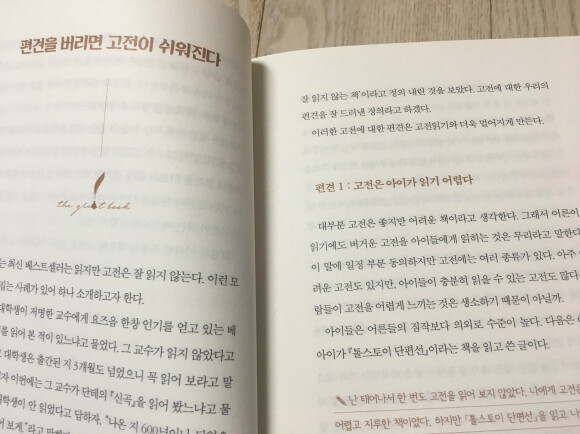 편견을 버리면 고전이 쉬워진다
the great book
는 최신 베스트셀러는 읽지만 고전은 잘 읽지 않는다. 이런 모
있는 사례가 있어 하나 소개하고자 한다.
대학생이 저명한 교수에게 요즈음 한창 인기를 얻고 있는 베
를 읽어 본 적이 있느냐고 물었다. 그 교수가 읽지 않았다고
대학생은 출간된 지 3개월도 넘었으니 꼭 읽어 보라고 말
자 이번에는 그 교수가 단테의 『신곡』을 읽어 봤느냐고 물
학생이 안 읽었다고 답하자, “나온 지 600년이나
보게.”라고
잘 읽지 않는 책’이라고 정의 내린 것을 보았다. 고전에 대한 우리의
편견을 잘 드러낸 정의라고 하겠다.
이러한 고전에 대한 편견은 고전읽기와 더욱 멀어지게 만든다.
편견 1 : 고전은 아이가 읽기 어렵다
대부분 고전은 좋지만 어려운 책이라고 생각한다. 그래서 어른이
읽기에도 버거운 고전을 아이들에게 읽히는 것은 무리라고 말한다
이 말에 일정 부분 동의하지만 고전에는 여러 종류가 있다. 아주
려운 고전도 있지만, 아이들이 충분히 읽을 수 있는 고전도 많다
람들이 고전을 어렵게 느끼는 것은 생소하기 때문이 아닐까.
아이들은 어른들의 짐작보다 의외로 수준이 높다. 다음은
아이가 『톨스토이 단편선』이라는 책을 읽고 쓴 글이다.
난 태어나서 한 번도 고전을 읽어 보지 않았다. 나에게 고전
어렵고 지루한 책이었다. 하지만 『톨스토이 단편선』을 읽고 나